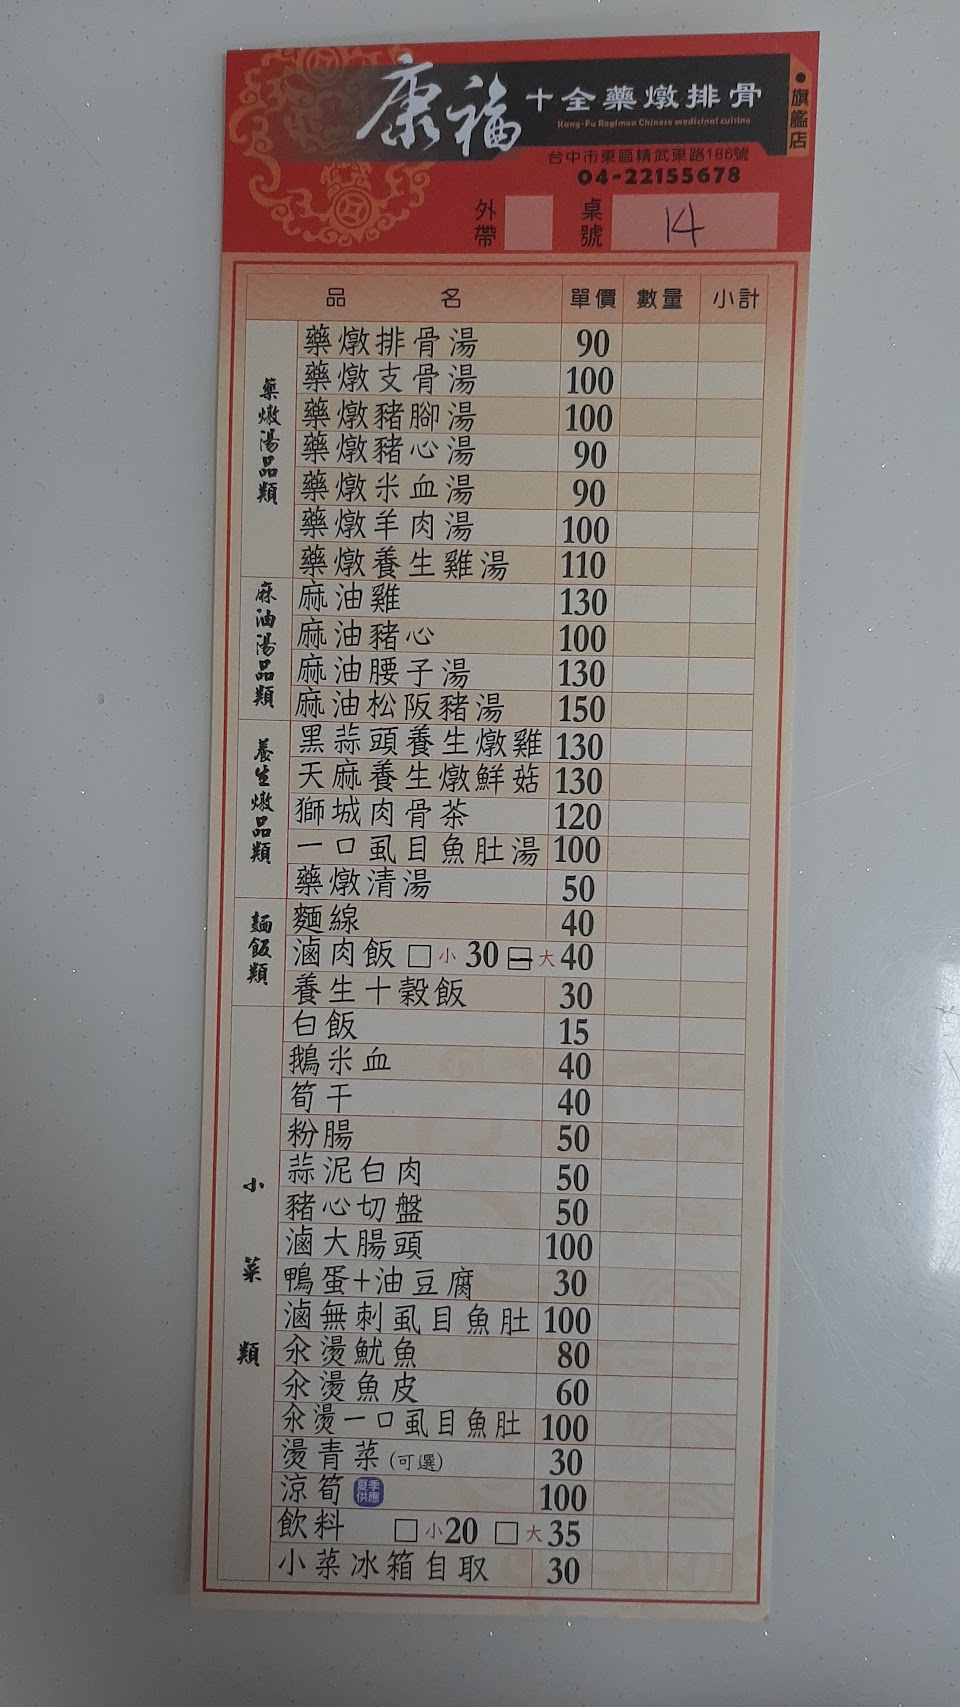 康福 十全藥燉排骨
Kang-Fu Regimen Chinese medicinal cuisine
•旗艦店
台中市東區精武東路186號
04-22155678
外帶 桌號 14
品名 單價 數量 小計
藥燉湯品類
藥燉排骨湯 90
藥燉支骨湯 100
藥燉豬腳湯 100
藥燉豬心湯 90
藥燉米血湯 90
藥燉羊肉湯 100
藥燉養生雞湯 110
麻油湯品類
麻油雞 130
麻油豬心 100
麻油腰子湯 130
麻油松阪豬湯 150
養生燉品類
黑蒜頭養生燉雞 130
天麻養生燉鮮菇 130
獅城肉骨茶 120
一口虱目魚肚湯 100
藥燉清湯 50
麵飯類
麵線 40
滷肉飯 □小 30 □大 40
養生十穀飯 30
小菜類
白飯 15
鵝米血 40
筍干 40
粉腸 50
蒜泥白肉 50
豬心切盤 50
滷大腸頭 100
鴨蛋+油豆腐 30
滷無刺虱目魚肚 100
汆燙魷魚 80
汆燙魚皮 60
汆燙一口虱目魚肚 100
燙青菜(可選) 30
涼筍 夏季供應 100
飲料 □小20 □大35
小菜冰箱自取 30